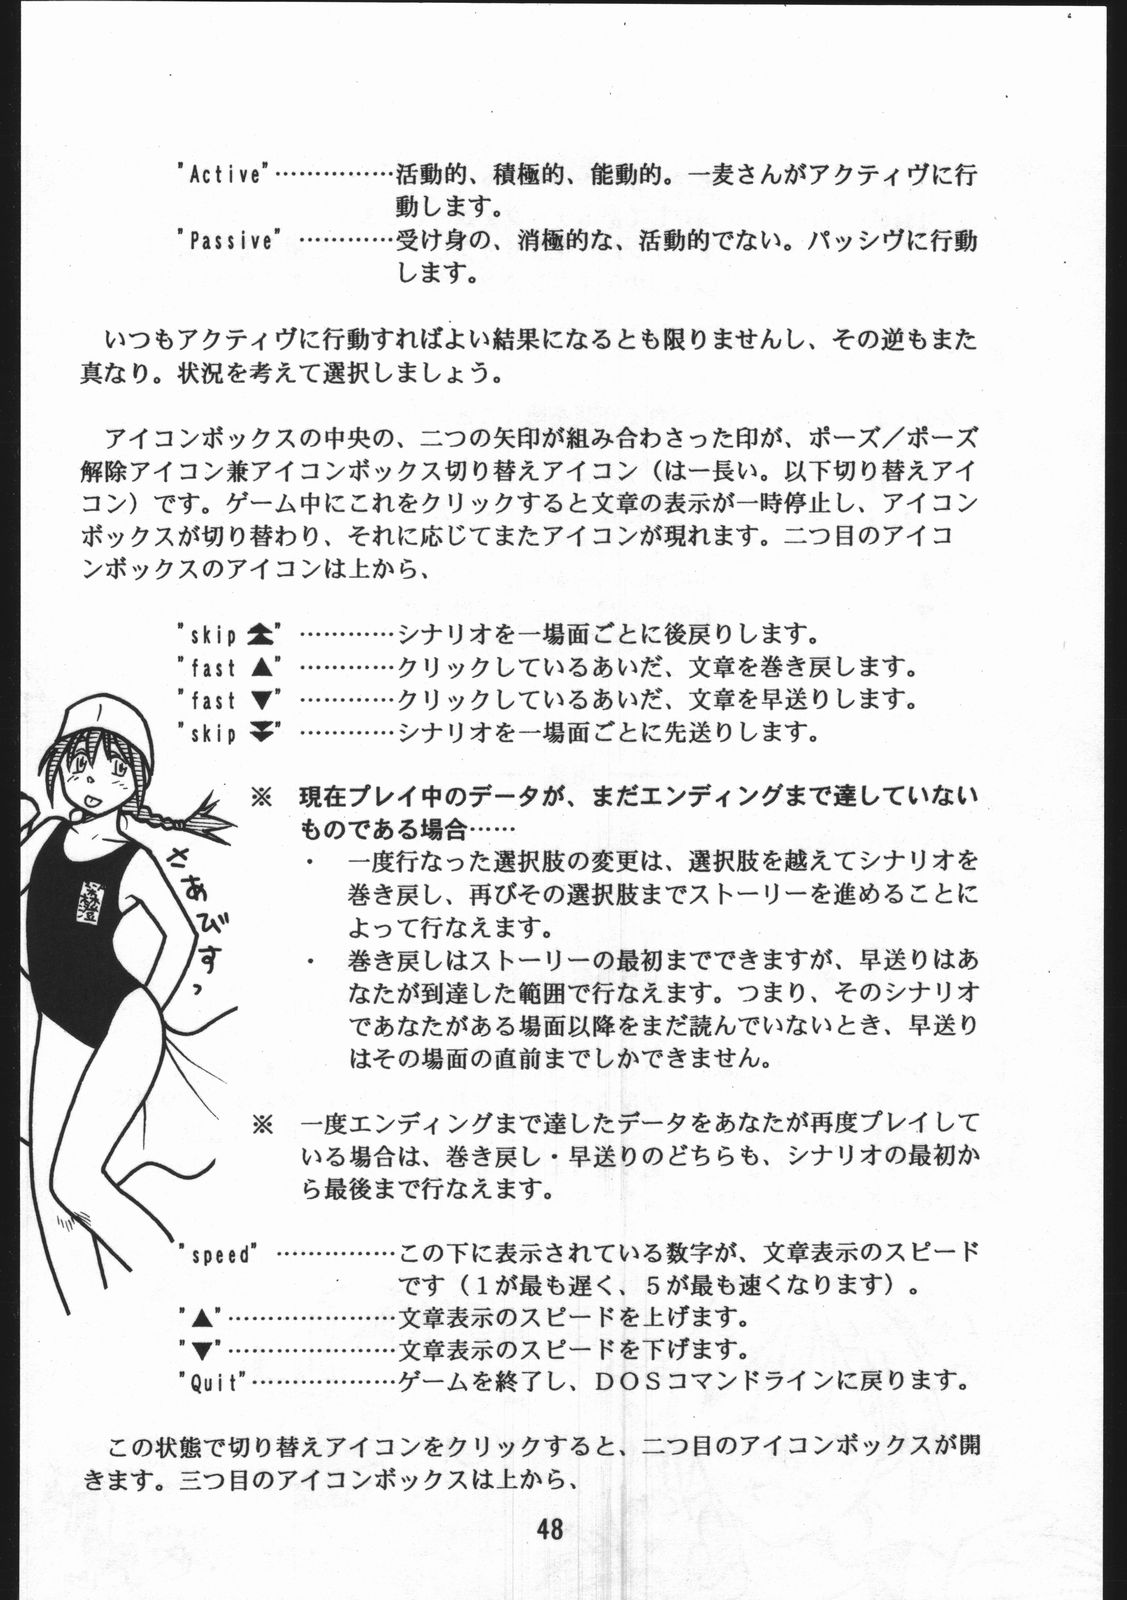 "Active"……………活動的、積極的、能動的。一麦さんがアクティヴに行
動します。
"Passive" …………受け身の、消極的な、活動的でない。パッシヴに行動
します。
　いつもアクティヴに行動すればよい結果になるとも限りませんし、その逆もまた
真なり。状況を考えて選択しましょう。
　アイコンボックスの中央の、二つの矢印が組み合わさった印が、ポーズ／ポーズ
解除アイコン兼アイコンボックス切り替えアイコン（はー長い。以下切り替えアイ
コン）です。ゲーム中にこれをクリックすると文章の表示が一時停止し、アイコン
ボックスが切り替わり、それに応じてまたアイコンが現れます。二つ目のアイコ
ンボックスのアイコンは上から、
"skip ⏫" …………シナリオを一場面ごとに後戻りします。
"fast ▲" …………クリックしているあいだ、文章を巻き戻します。
"fast ▼" …………クリックしているあいだ、文章を早送りします。
"skip ⏬" …………シナリオを一場面ごとに先送りします。
※　現在プレイ中のデータが、まだエンディングまで達していない
ものである場合……
・　一度行なった選択肢の変更は、選択肢を越えてシナリオを
巻き戻し、再びその選択肢までストーリーを進めることに
よって行なえます。
・　巻き戻しはストーリーの最初までできますが、早送りはあ
なたが到達した範囲で行なえます。つまり、そのシナリオ
であなたがある場面以降をまだ読んでいないとき、早送り
はその場面の直前までしかできません。
※　一度エンディングまで達したデータをあなたが再度プレイして
いる場合は、巻き戻し・早送りのどちらも、シナリオの最初か
ら最後まで行なえます。
さあびすっ
"speed" ……………この下に表示されている数字が、文章表示のスピード
です（１が最も遅く、５が最も速くなります）。
"▲"…………………文章表示のスピードを上げます。
"▼"…………………文章表示のスピードを下げます。
"Quit"………………ゲームを終了し、ＤＯＳコマンドラインに戻ります。
　この状態で切り替えアイコンをクリックすると、二つ目のアイコンボックスが開
きます。三つ目のアイコンボックスは上から、
48